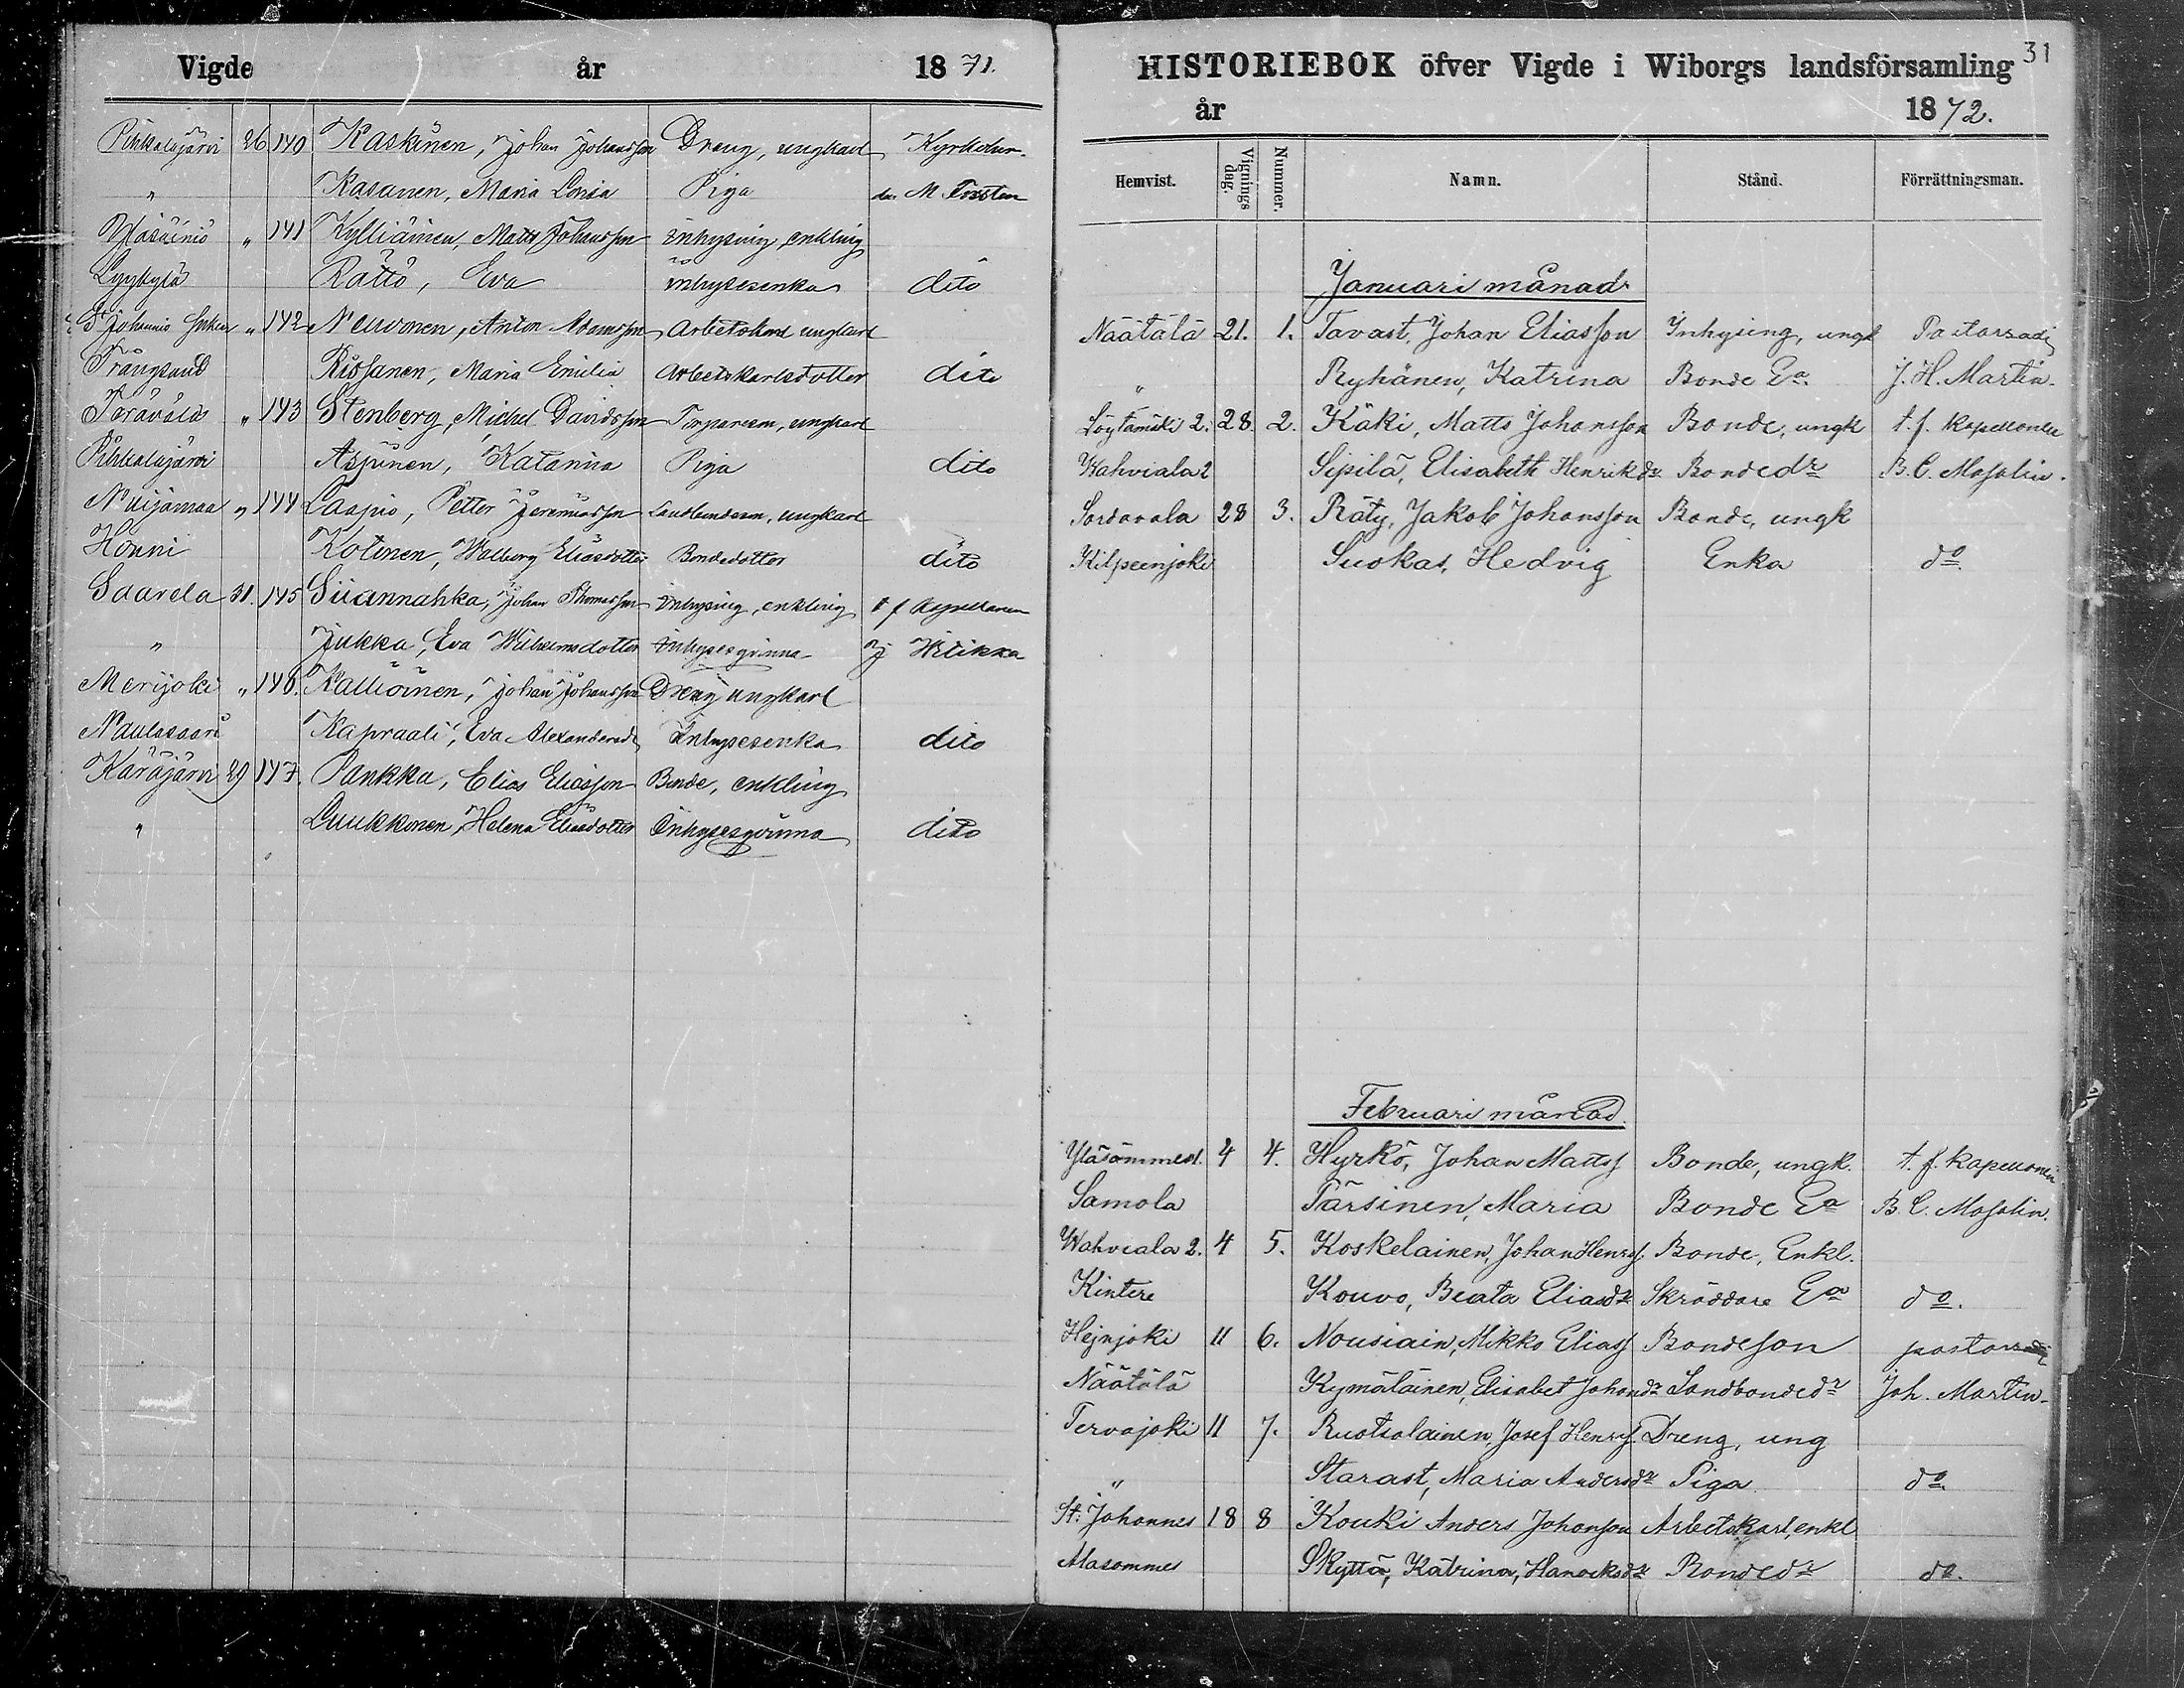 Vigde år 1871.
Pihkalajärvi 26 140 Kaskinen, Johan Johansson Dreng, ungkarl Kyrkoher-
" Kasanen, Maria Lovisa Piga den M. Forsten
" 141 Kylliäinen, Matts Johansson Inhysing, enkling
Lyykylä Rättö, Eva inhysesenka dito
St Johannis " 142 Neuvonen, Anton Adamsson Arbetskarl ungkarl
Trångsund Rissanen, Maria Emilia Arbetskarlsdotter dito
Terävälä " 143 Stenberg, Michel Davidsson Torpareson, ungkarl
Pihkalajärvi Aspinen, Katarina Piga dito
Nuijamaa " 144 Laapio, Petter Jeremiasson Landbondeson, ungkarl
Honni Kotinen, Walborg Eliasdotter Bondedotter dito
Saarela 31. 145 Siiannahka, Johan Thomasson Inhysing, enkling t f Kapellanen
" Jukka, Eva Wilhelmsdotter Inhysesqvinna Hitikka
Merijoki " 146. Kalliöinen, Johan Johansson Dreng ungkarl
Naulasaari Kapraali, Eva Alexandersd Inhysesenka dito
Käräjärvi 29 147. Pankka, Elias Eliasson Bonde, enkling
" Luukkonen, Helena Eliasdotter Inhysesqvinna dito
31
HISTORIEBOK öfver Vigde i Wiborgs landsförsamling
år 1872.
Hemvist. Vignings dag. Nummer. Namn. Stånd. Förrättningsman.
Januari månad
Näätälä 21. 1. Tavast, Johan Eliasson Inhysing, ungk Pastorsadj
" Ryhänen, Katrina Bonde Ea. J. H. Martin.
2. 28. 2. Käki, Matts Johansson Bonde, ungk t. f. Kapellanen
Wahviala 2 Sipilä, Elisabeth Henriksdr Bondedr B. C. Mosolin.
Sordavala 28 3. Räty, Jakob Johansson Bonde, ungk
Kilpeenjoki Suokas, Hedvig Enka do
Februari månad.
Yläsommed. 4 4. Hyrkö, Johan Matts Bonde, ungk. t. f. Kapellanen
Samola Pärsinen, Maria Bonde Ea B. C. Mosolin.
Wahviala 2. 4 5. Koskelainen, Johan Henrs Bonde, Enkl.
Kintere Kouvo, Beata Eliasdr Skräddare Ea do.
Hejnjoki 11 6. Nousiain, Mikko Elias Bondeson pastorsadj
Näätälä Kymäläinen, Elisabet Johansdr Landbondedr Joh. Martin
Tervajoki 11 7. Ruotsalainen, Josef Henrs Dreng, ung
" Starast, Maria Andersdr Piga do.
St: Johannes 18 8 Kouki Anders Johansson Arbetskarl, enkl
Alasomme Skyttä, Katrina, Hanocksdr Bondedr do.